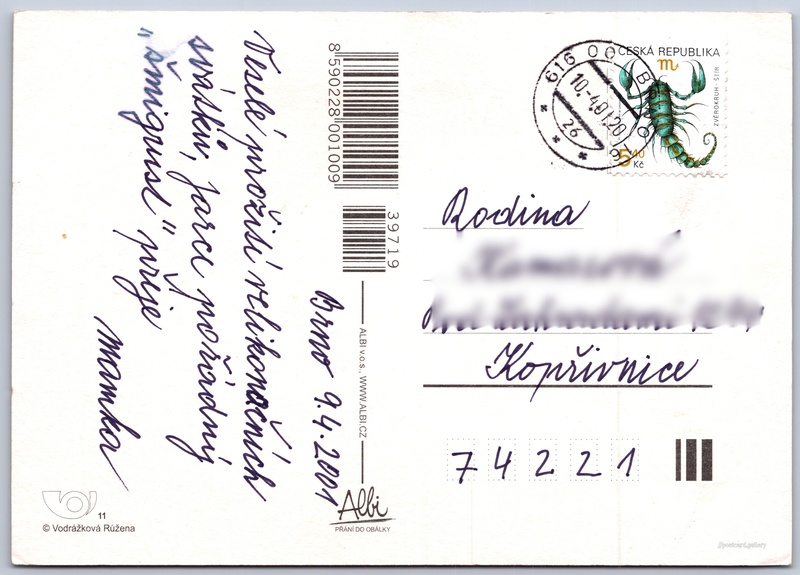 Veselé prožití velikonočních
svátků, Jarce pořádný
„šmigrust" přeje
mamka
Brno 9.4.2001
8 590228 001009
39719
ALBI v.o.s., WWW.ALBI.CZ
Albi
PŘÁNÍ DO OBÁLKY
11
© Vodrážková Růžena
616 00 BRNO 16
10.-4.01.20
26
ČESKÁ REPUBLIKA
m
ZVĚROKRUH - ŠTÍR
5,40
Kč
Rodina
Kopřivnice
74221